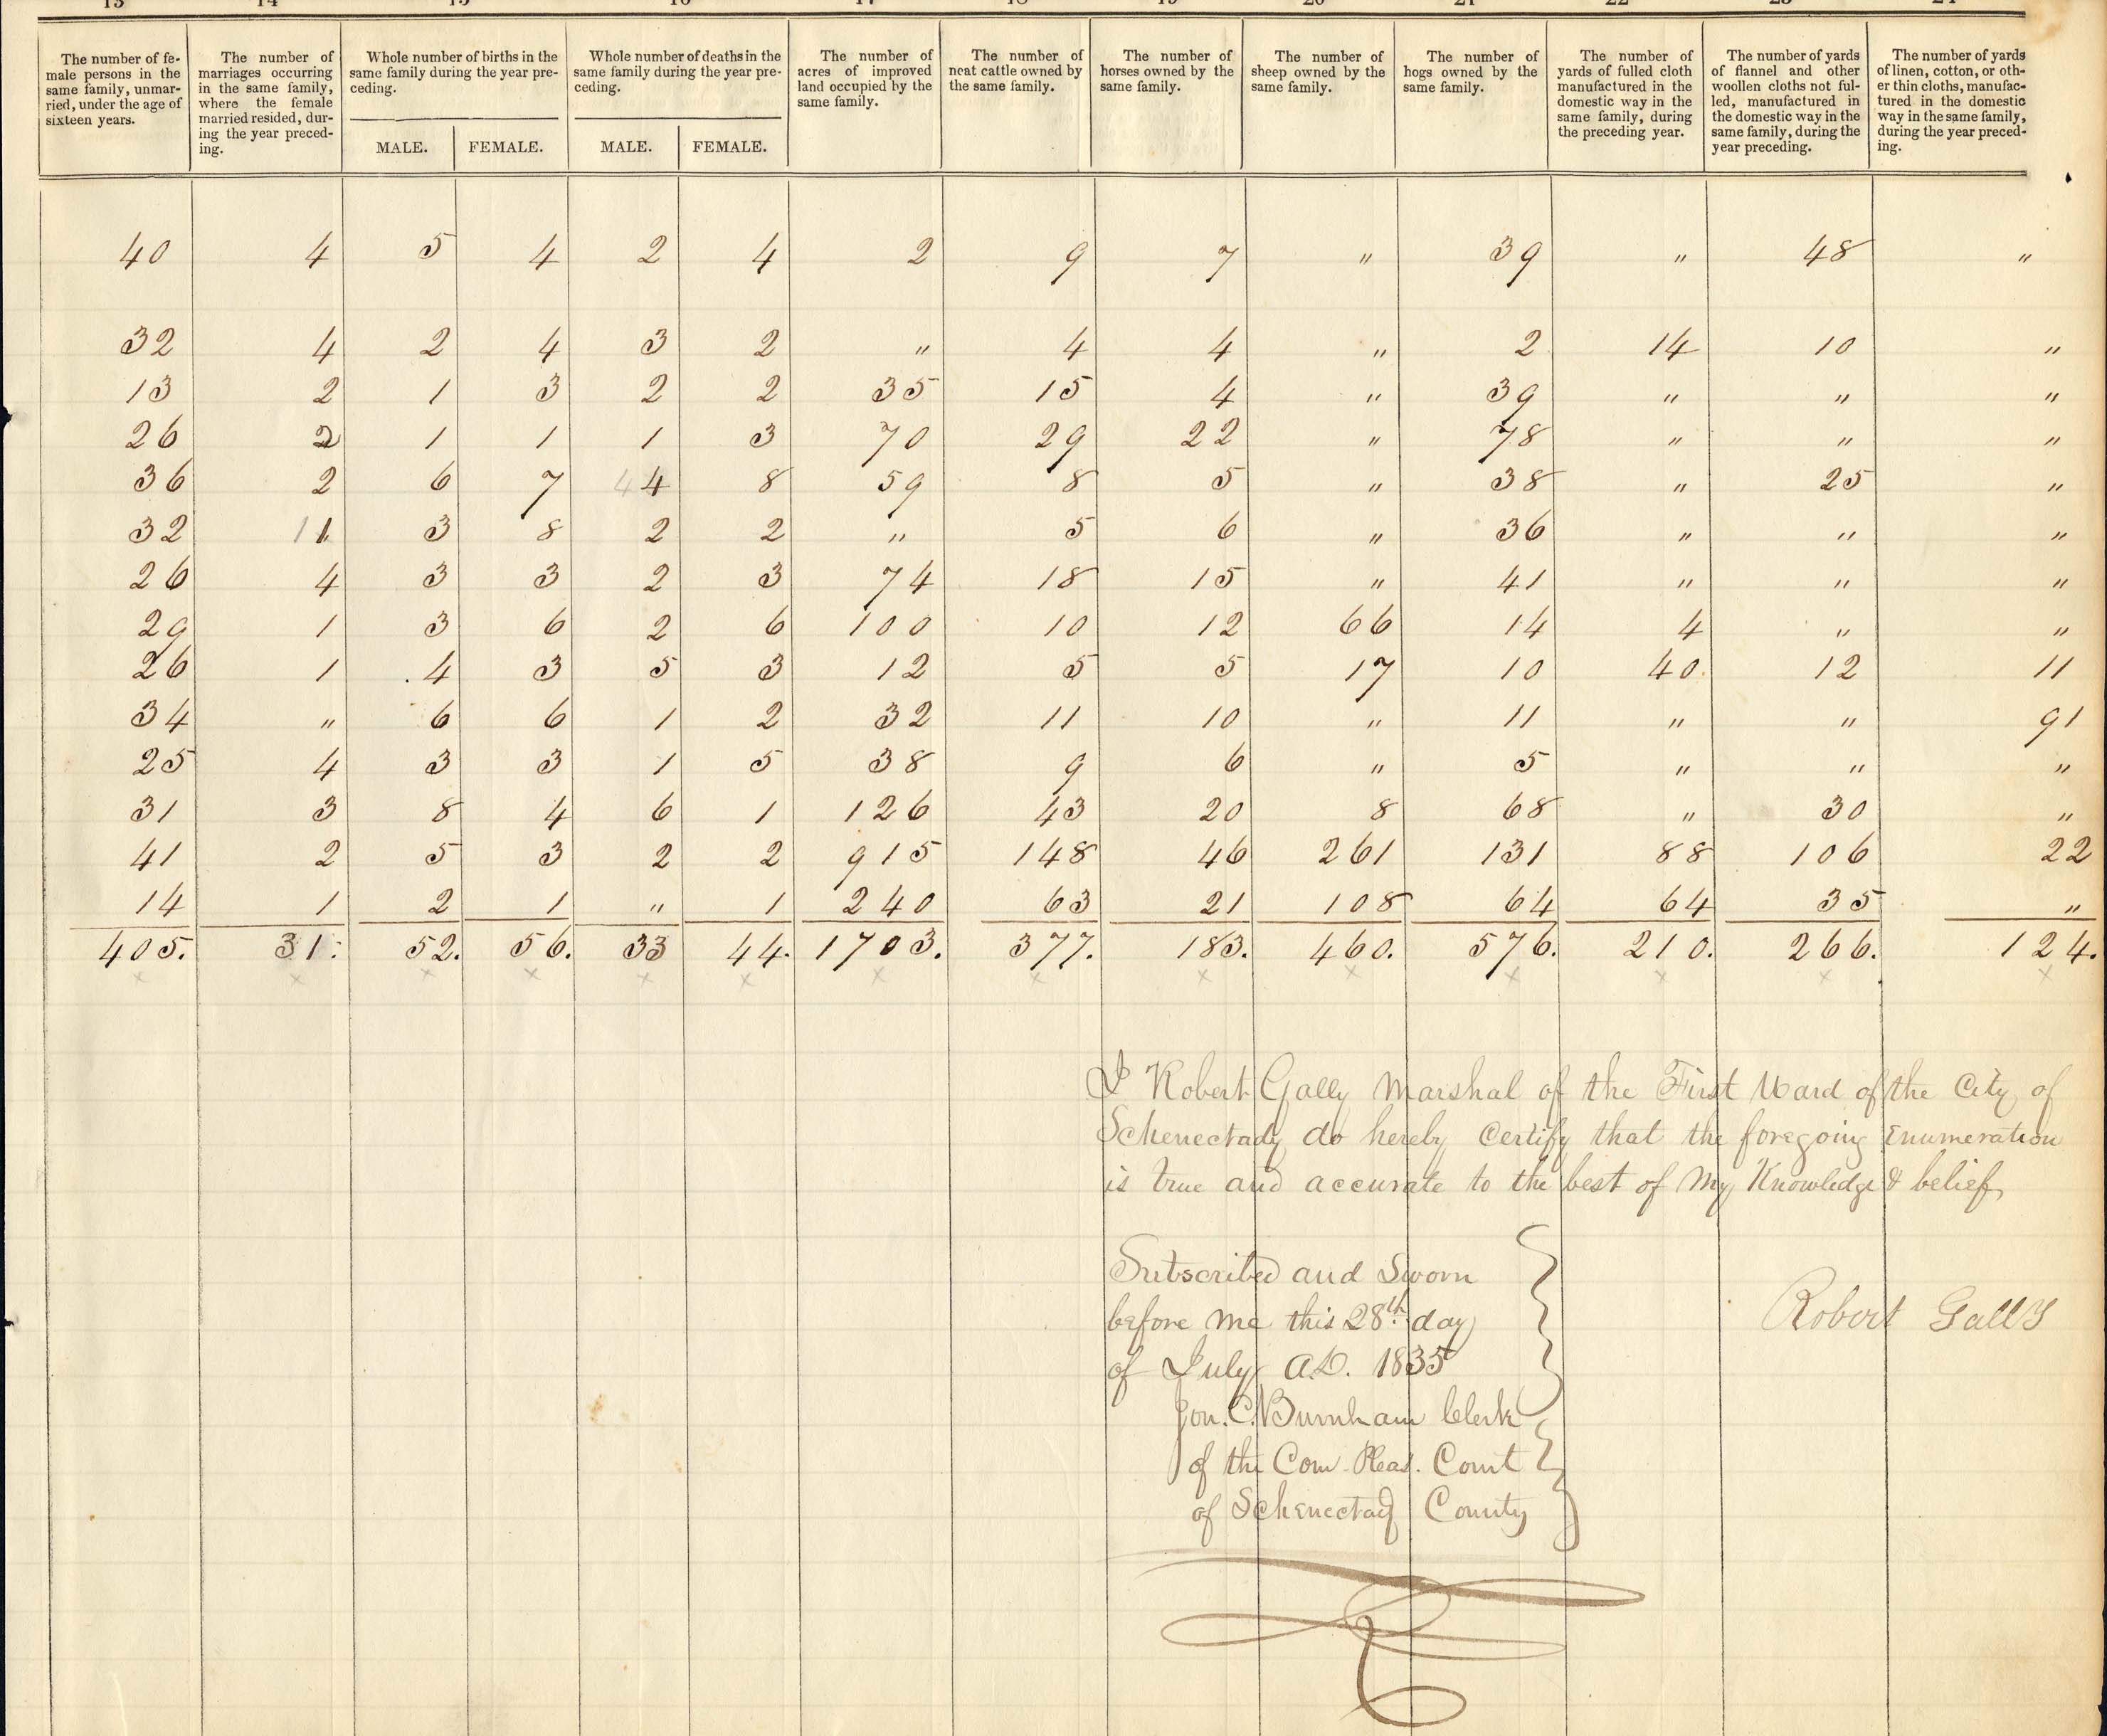 13 14 15 16 17 18 19 20 21 22 23 24
The number of fe-
male persons in the
same family, unmar-
ried, under the age of
sixteen years.
The number of
marriages occurring
in the same family,
where the female
married resided, dur-
ing the year preced-
ing.
Whole number of births in the
same family during the year pre-
ceding.
MALE. FEMALE.
Whole number of deaths in the
same family during the year pre-
ceding.
MALE. FEMALE.
The number of
acres of improved
land occupied by the
same family.
The number of
neat cattle owned by
the same family.
The number of
horses owned by the
same family.
The number of
sheep owned by the
same family.
The number of
hogs owned by the
same family.
The number of
yards of fulled cloth
manufactured in the
domestic way in the
same family, during
the preceding year.
The number of yards
of flannel and other
woollen cloths not ful-
led, manufactured in
the domestic way in the
same family, during the
year preceding.
The number of yards
of linen, cotton, or oth-
er thin cloths, manufac-
tured in the domestic
way in the same family,
during the year preced-
ing.
40 4 5 4 2 4 2 9 7 " 39 " 48 "
32 4 2 4 3 2 " 4 4 " 2 14 10 "
13 2 1 3 2 2 35 15 4 " 39 " " "
26 2 1 1 1 3 70 29 22 " 78 " " "
36 2 6 7 4 8 59 8 5 " 38 " 25 "
32 1 3 8 2 2 " 5 6 " 36 " " "
26 4 3 3 2 3 74 18 15 " 41 " " "
29 1 3 6 2 6 100 10 12 66 14 4 " "
26 1 4 3 5 3 12 5 5 17 10 40 12 11
34 " 6 6 1 2 32 11 10 " 11 " " 91
25 4 3 3 1 5 38 9 6 " 5 " " "
31 3 8 4 6 1 126 43 20 8 68 " 30 "
41 2 5 3 2 2 915 148 46 261 131 88 106 22
14 1 2 1 " 1 240 63 21 108 64 64 35 "
405. 31. 52. 56. 33 44. 1703. 377. 183. 460. 576. 210. 266. 124.
x x x x x x x x x x x x x x
I Robert Gally Marshal of the First Ward of the City of
Schenectady do hereby Certify that the foregoing Enumeration
is true and accurate to the best of My Knowledge & belief
Subscribed and Sworn
before me this 28th day
of July A.D. 1835
Jon. C. Burnham Clerk
of the Com. Pleas. Court
of Schenectady County
Robert Gally